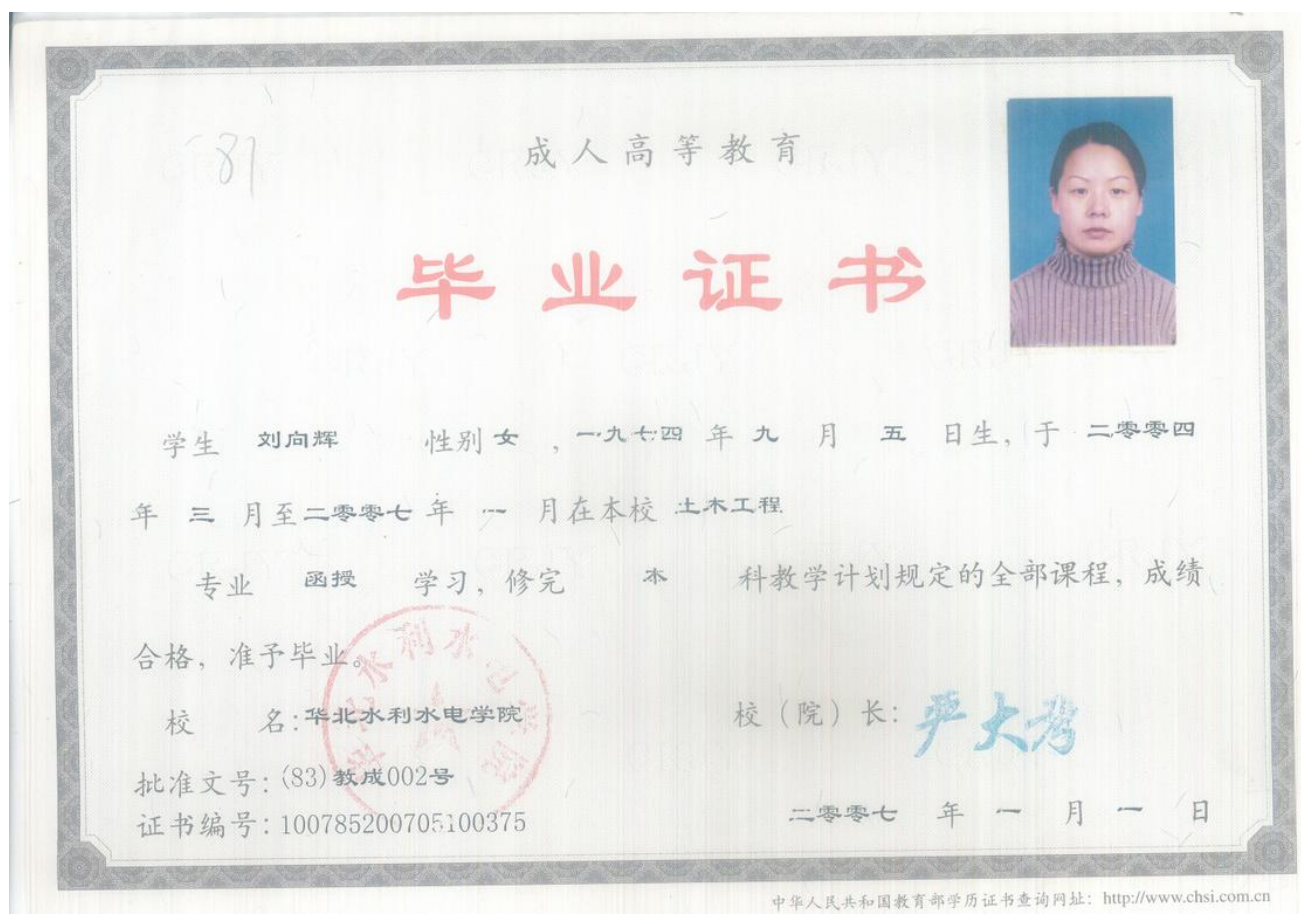 81
成人高等教育
毕业证书
学生 刘向辉 性别 女 ,一九七四 年 九 月 五 日生, 于 二零零四
年 三 月至 二零零七 年 一 月在本校 土木工程
专业 函授 学习, 修完 本 科教学计划规定的全部课程, 成绩
合格, 准予毕业。
校 名: 华北水利水电学院
校(院)长: 严大考
华北水利水电学院
批准文号: (83)教成002号
证书编号: 100785200705100375
二零零七 年 一 月 一 日
中华人民共和国教育部学历证书查询网址: http://www.chsi.com.cn